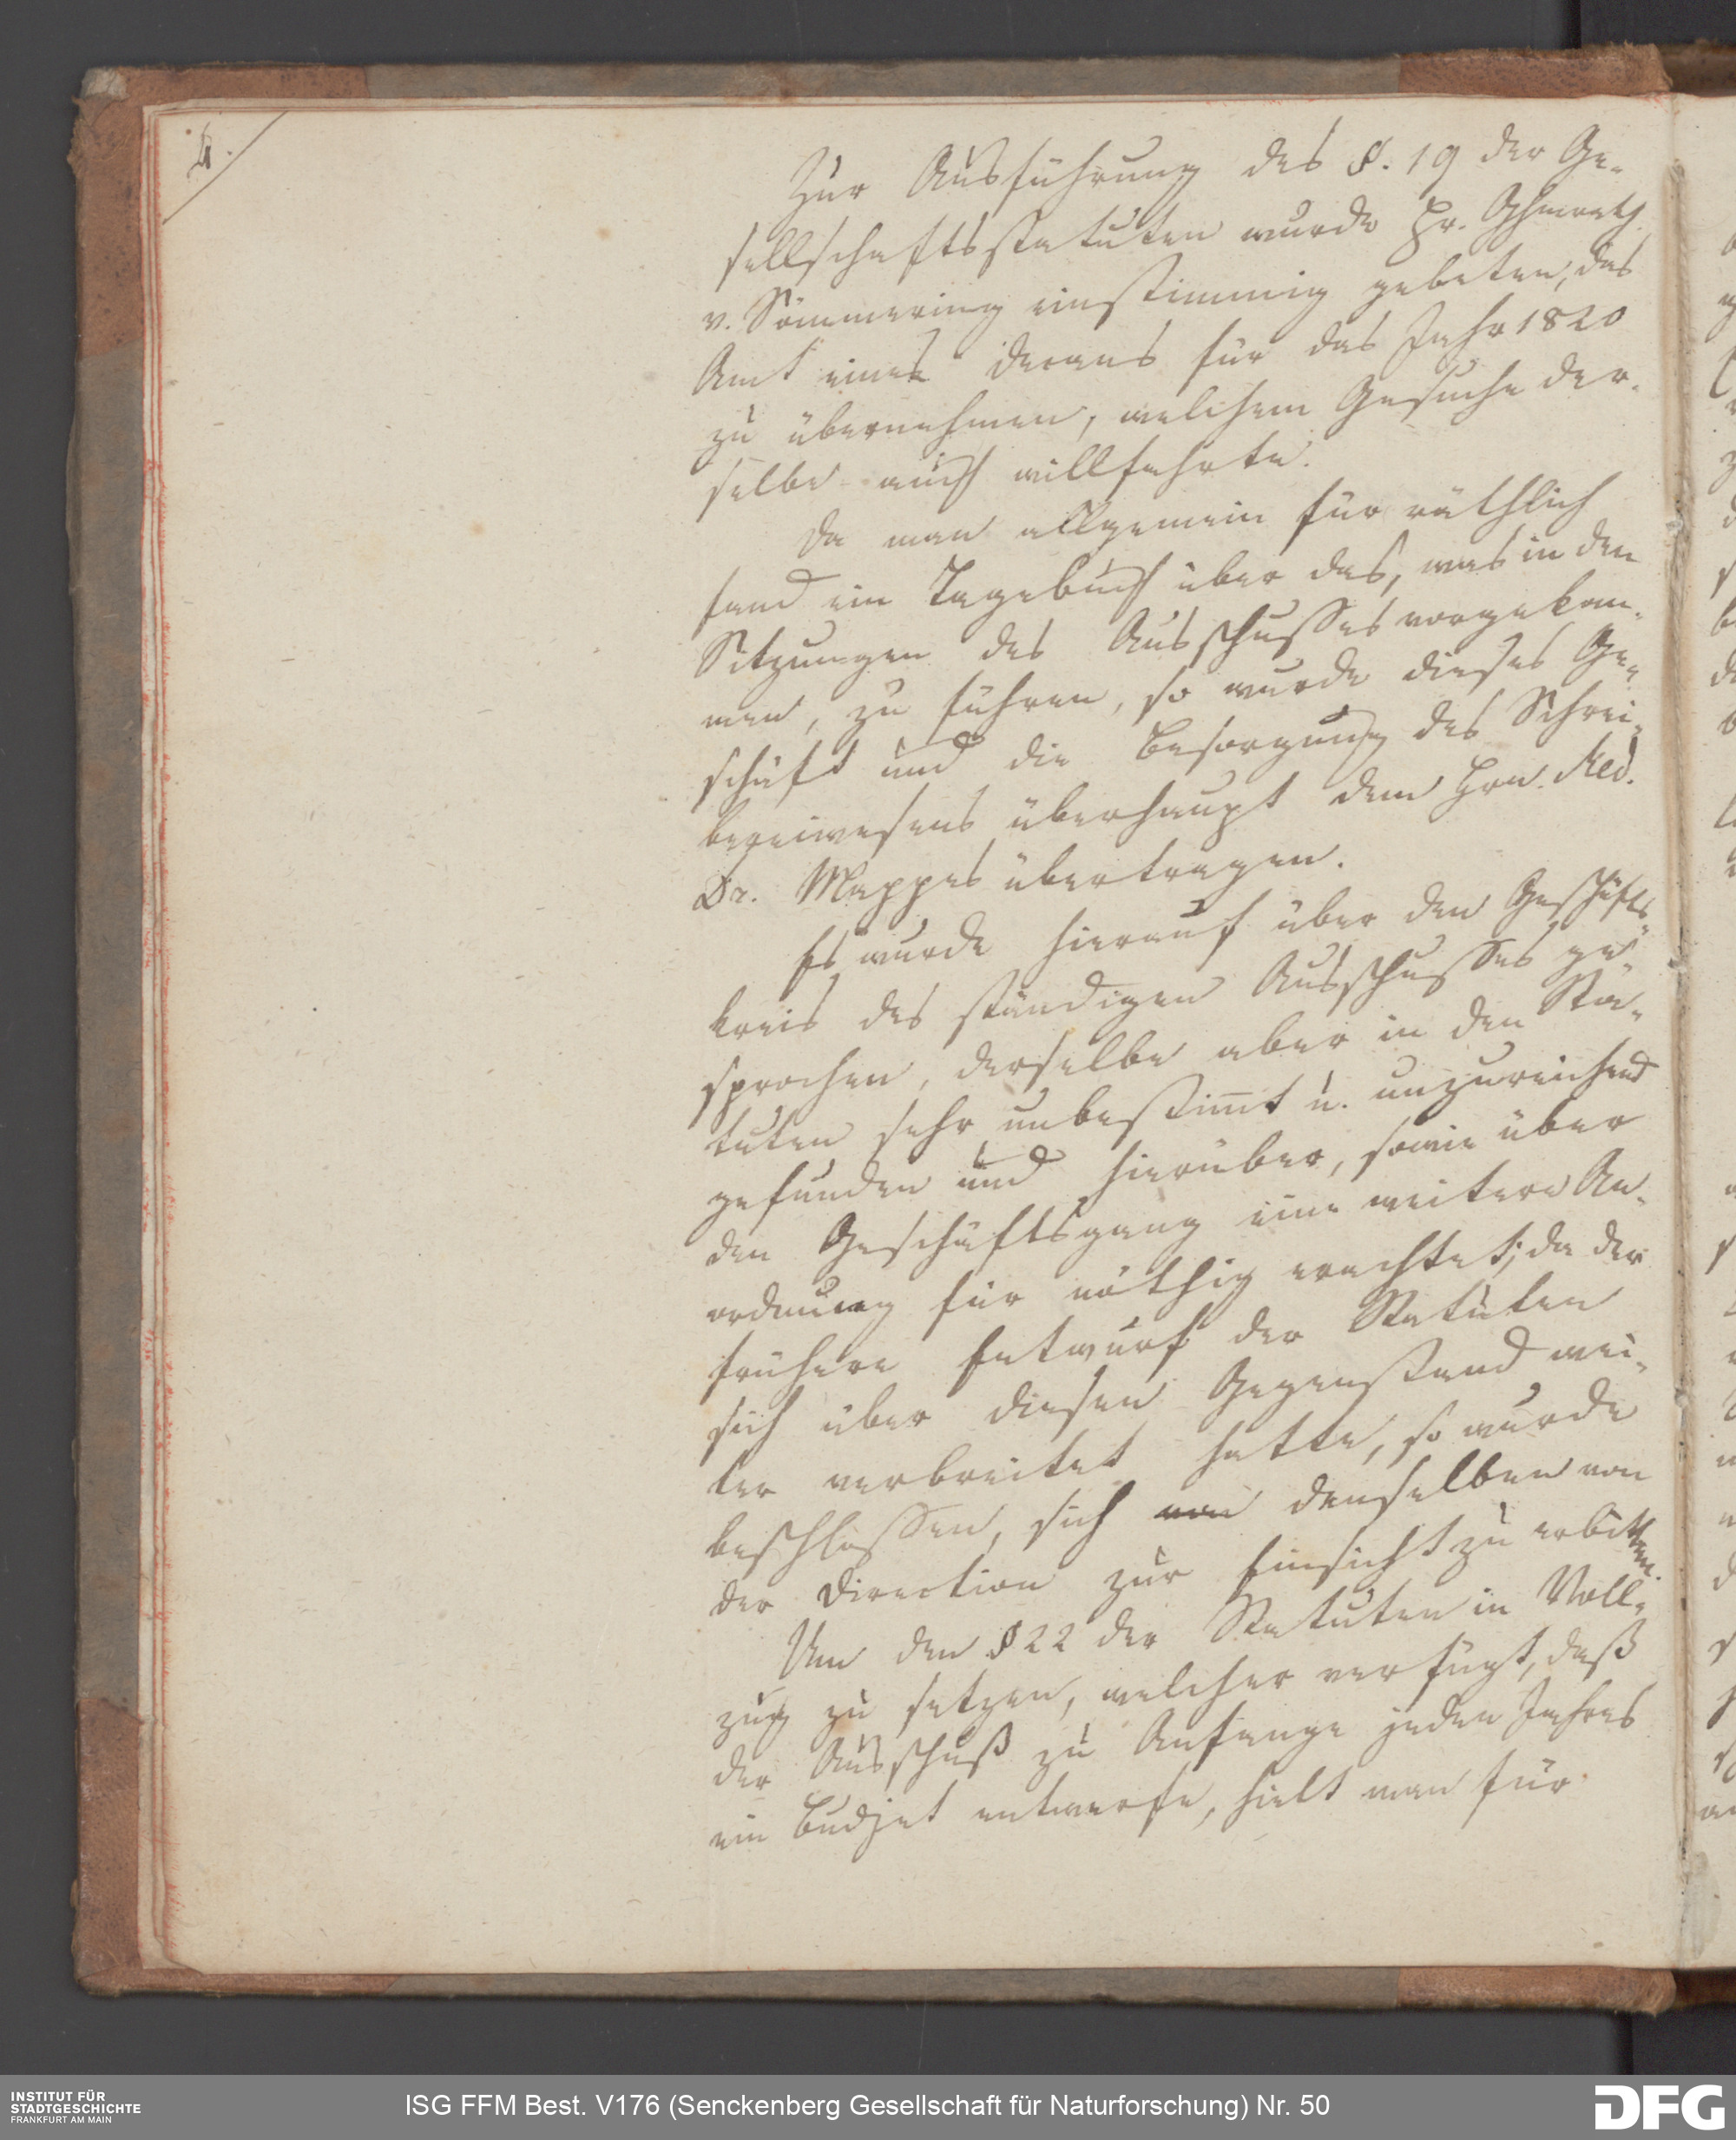 4.
Zur Ausführung des §. 19 der Ge-
sellschaftsstatuten wurde Hr. Ghmrath
v. Sömmering einstimmig gebeten, das
Amt eines Decans für das Jahr 1820
zu übernehmen, welchem Gesuche der-
selbe auch willfahrte.
Da man allgemein für räthlich
fand ein Tagebuch über das, was in den
Sitzungen des Ausschusses vorgekom-
men, zu führen, so wurde dieses Ge-
schäft und die Besorgung des Schrei-
bereiwesens überhaupt dem Hrn. Med.
Dr. Mappes übertragen.
Es wurde hierauf über den Geschäfts-
kreis des ständigen Ausschusses ge-
sprochen, derselbe aber in den Sta-
tuten sehr unbestimt u. unzureichend
gefunden und hierüber, sowie über
den Geschäftsgang eine weitere An-
ordnung für nöthig erachtet; da der
frühere Entwurf der Statuten
sich über diesen Gegenstand wei-
ter verbreitet hatte, so wurde
beschlossen, sich denselben von
der Direction zur Einsicht zu erbitten.
Um den § 22 der Statuten in Voll-
zug zu setzen, welcher verfügt, daß
der Ausschuß zu Anfange jeden Jahres
ein Budjet entwerfe, hielt man für
INSTITUT FÜR
STADTGESCHICHTE
FRANKFURT AM MAIN
ISG FFM Best. V176 (Senckenberg Gesellschaft für Naturforschung) Nr. 50
DFG